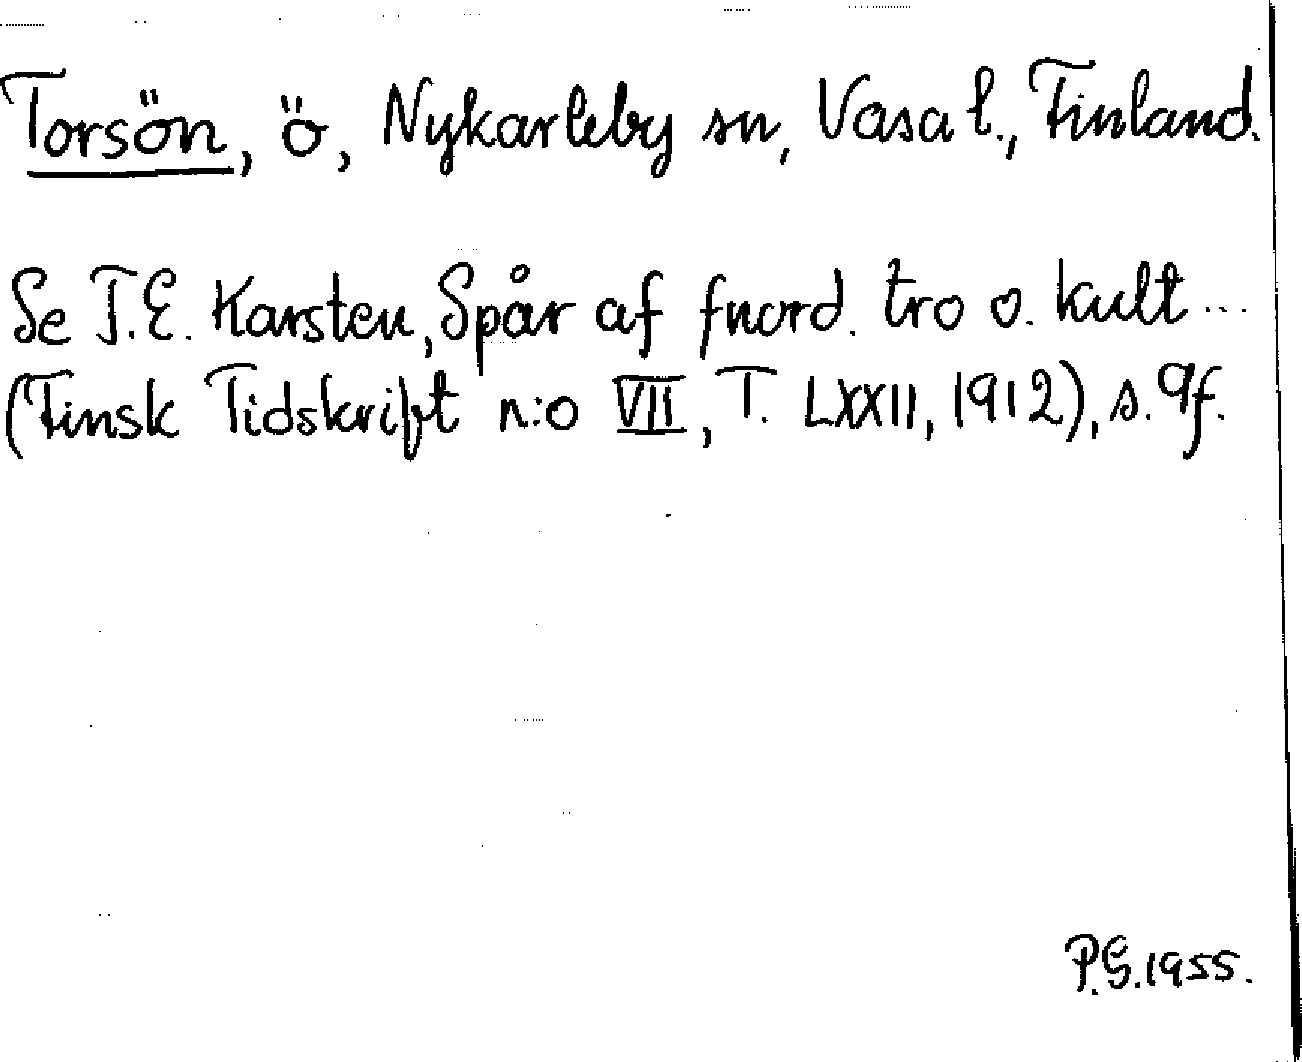 Torsön, ö, Nykarleby sn, Vasa l., Finland.
Se T.E. Karsten, Spår af fnord. tro o. kult ...
(Finsk Tidskrift n:o VII, T. LXXII, 1912), s. 9f.
P.G. 1955.